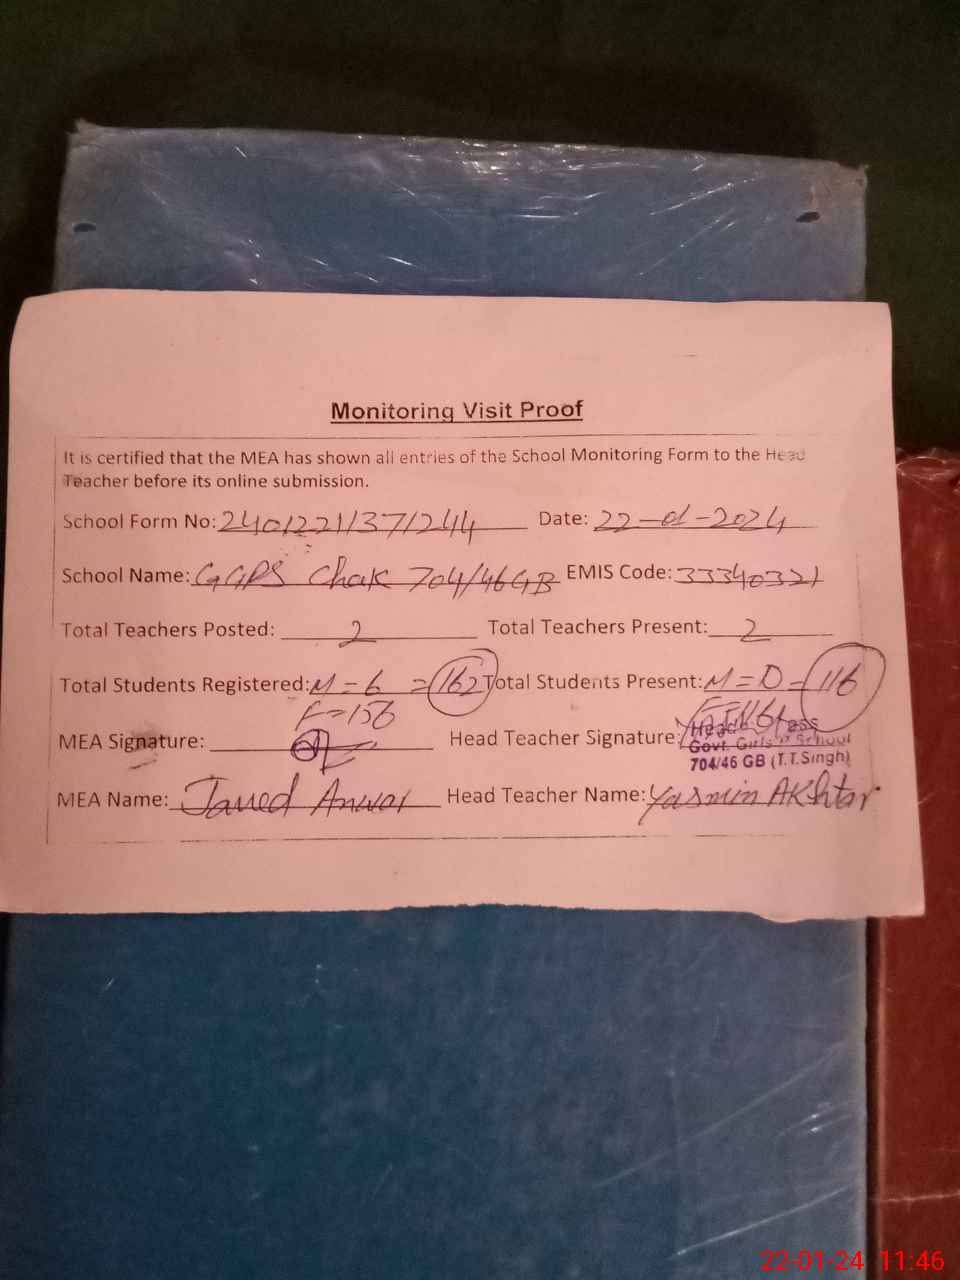 Monitoring Visit Proof
It is certified that the MEA has shown all entries of the School Monitoring Form to the Head
Teacher before its online submission.
School Form No: 24012211371244 Date: 22-01-2024
School Name: GGPS Chak 704/46GB EMIS Code: 33340321
Total Teachers Posted: 2 Total Teachers Present: 2
Total Students Registered: M = 6 = 162 Total Students Present: M = 0 = 116
F = 156 F = 116
MEA Signature: Head Teacher Signature:
Govt. Girls P School
704/46 GB (T.T.Singh)
MEA Name: Javed Anwar Head Teacher Name: Yasmin Akhtar
22-01-24 11:46